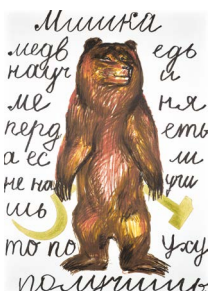 Мишка
медв едь
науч и
ме ня
перд еть
а ес ли
не на учи
шь
то по уху
получишь